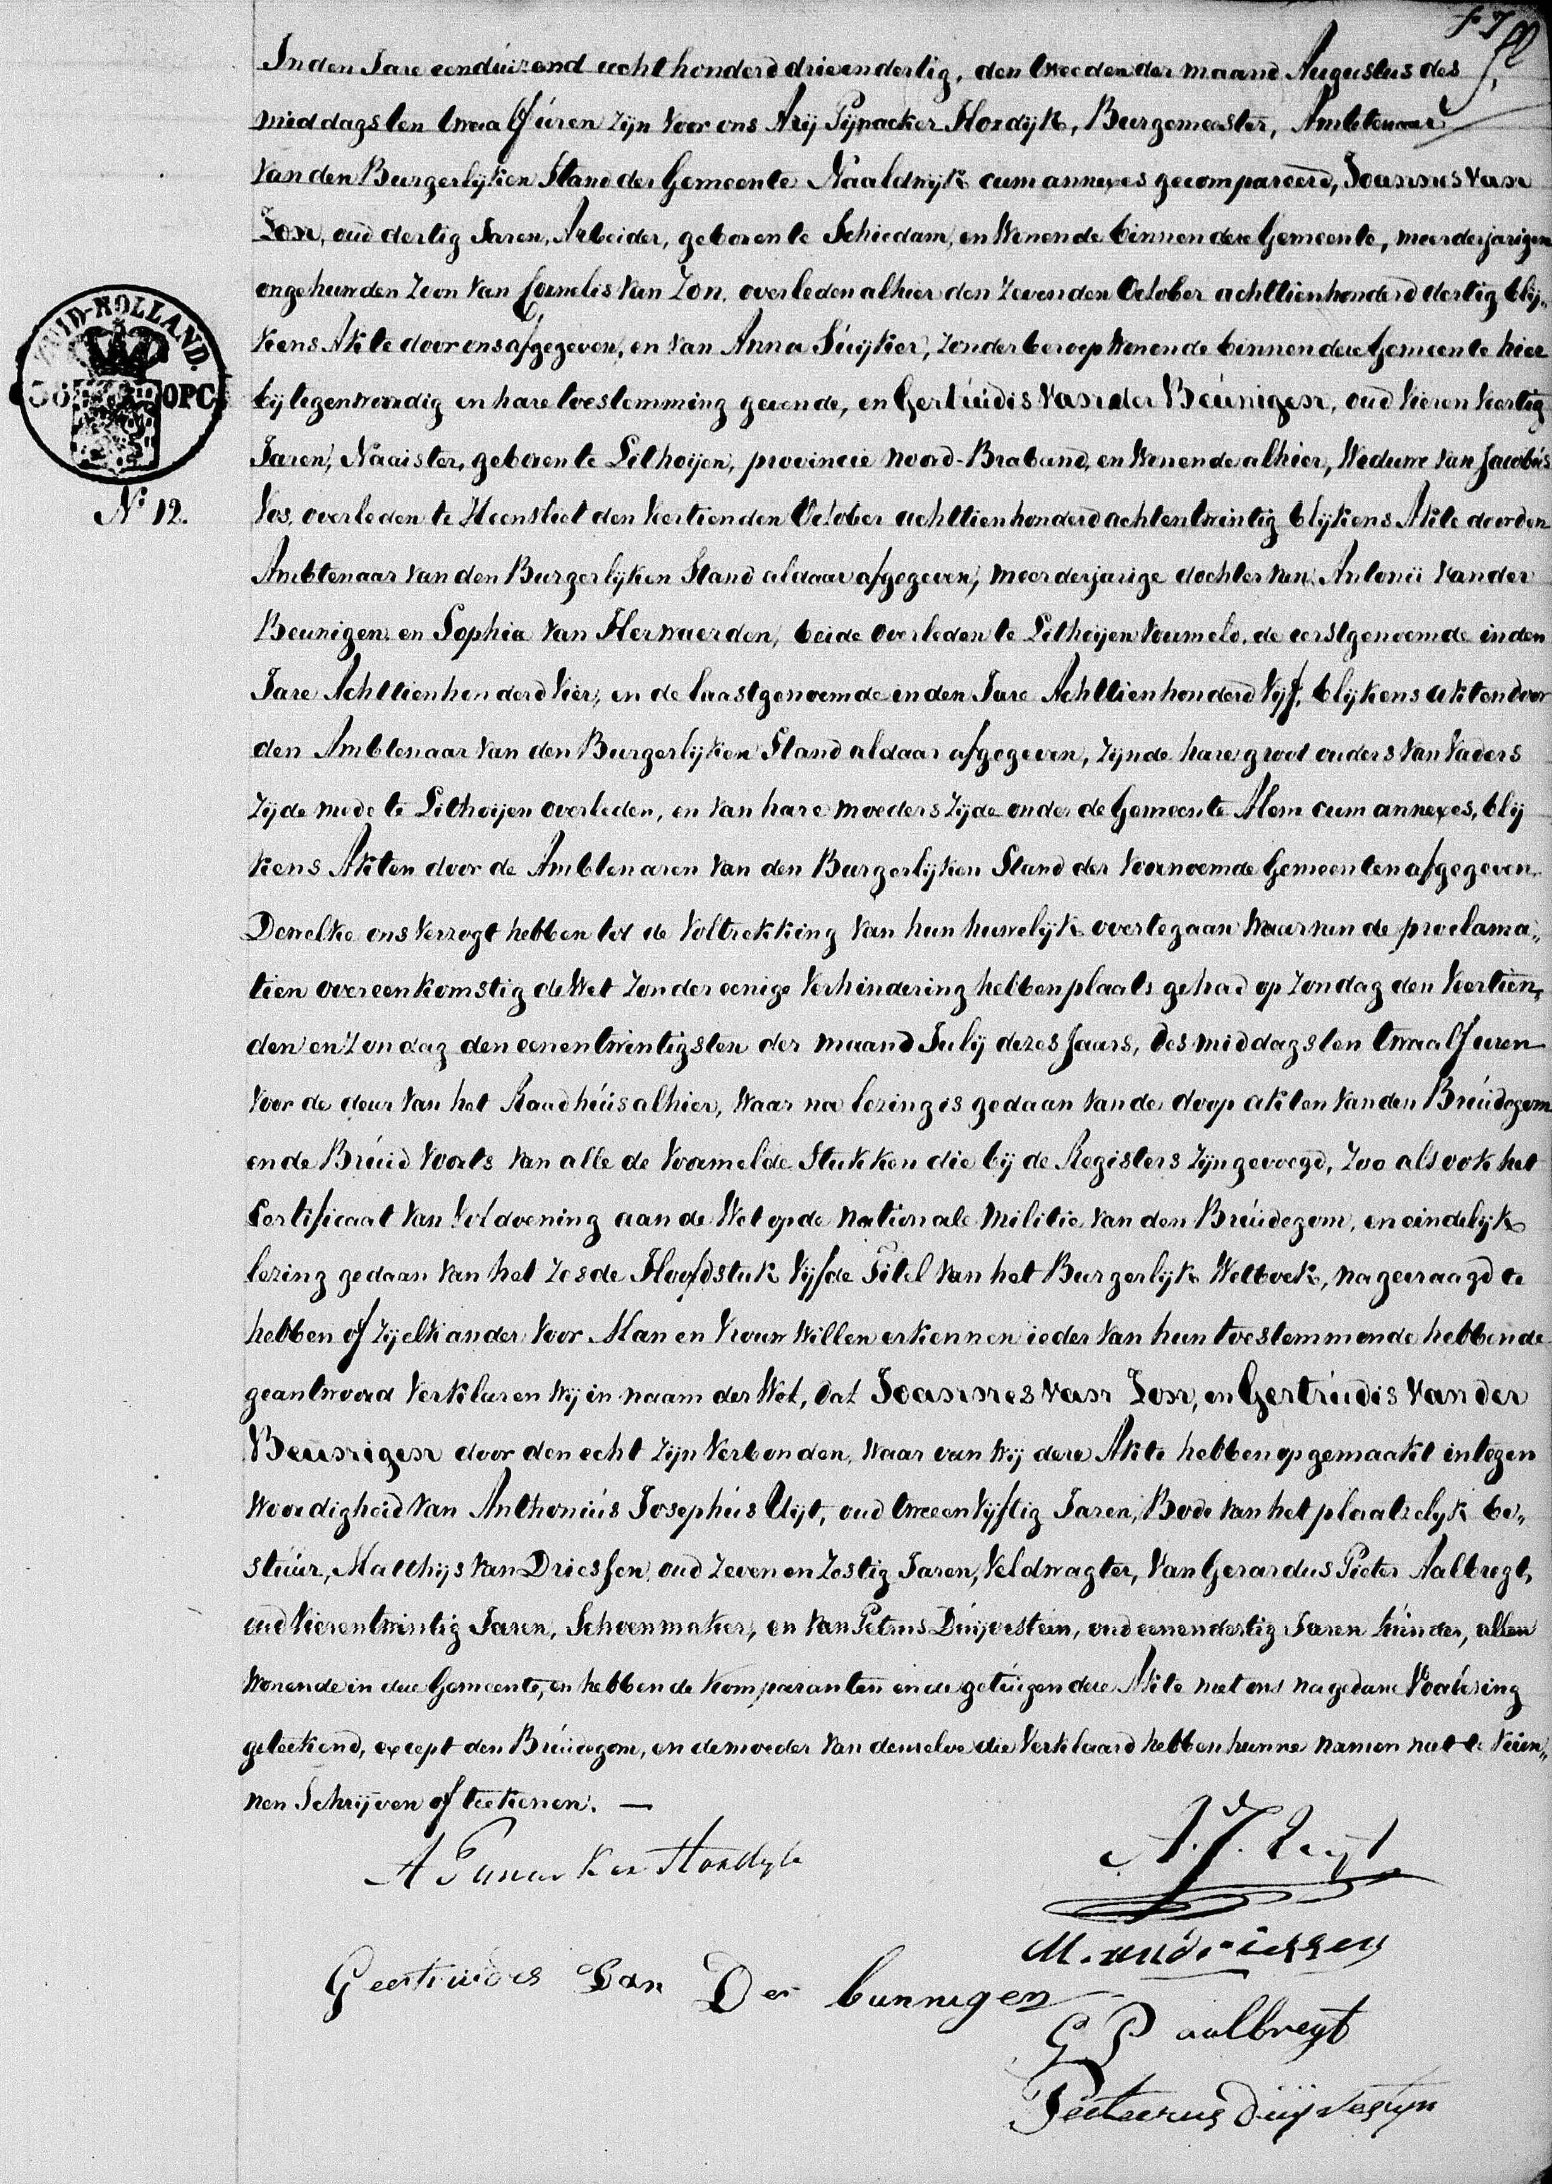 f 7
In den Jare eenduizend acht honderd drieendertig, den tweeden der maand Augustus des
middags ten twaalf uren zijn voor ons Arij Pijnacker Hordijk, Burgemeester, Ambtenaar
van den Burgerlijken Stand der Gemeente Naaldwijk cum annexes gecompareerd, Joannes van
Zon, oud dertig Jaren, Arbeider, geboren te Schiedam, en Wonende binnen deze Gemeente, meerderjarigen
ongehuwden Zoon van Cornelis van Zon, overleden alhier den Zevenden October achttienhonderd dertig blij„
kens Akte door ons afgegeven, en van Anna Suijker, Zonder beroep Wonende binnen deze Gemeente hier
bij tegenwoordig en hare toestemming gevende, en Gertrúdis van der Beúnigen, oud vieren veertig
Jaren, Naaister, geboren te Lithoijen, provincie noord-Braband, en Wonende alhier, Weduwe van Jacobús
Vos, overleden te Heenvliet den veertienden October achttienhonderd achtentwintig blijkens Akte door den
Ambtenaar van den Burgerlijken Stand aldaar afgegeven, meerderjarige dochter van Antonii van der
Beunigen en Sophia van Herwaerden, beide overleden te Lithoijen voormeld, de eerstgenoemde in den
Jare Achttienhonderd vier, en de laastgenoemde in den Jare Achttienhonderd vijf, blijkens akten door
den Ambtenaar van den Burgerlijken Stand aldaar afgegeven, Zijnde hare groot ouders van Vaders
Zijde mede te Lithoijen overleden, en van hare moeders Zijde onder de Gemeente Alem cum annexes, blij
kens Akten door de Ambtenaren van den Burgerlijken Stand der voornoemde Gemeenten afgegeven.
Dewelke ons verzogt hebben tot de Voltrekking van hun huwelijk over te gaan waarvan de proclama„
tien overeenkomstig de Wet Zonder eenige Verhindering hebben plaats gehad op Zondag den veertien„
den en Zondag den eenentwintigsten der maand Julij dezes Jaars, des middags ten twaalf uren
voor de deur van het Raadhúis alhier, Waar na lezing is gedaan van de doop akten van den Brúidegom
en de Brúid voorts van alle de voormelde Stukken die bij de Registers Zijn gevoegd, Zoo als ook het
Certificaat van Voldoening aan de Wet op de nationale Militie van den Brúidegom, en eindelijk
lezing gedaan van het Zesde Hoofdstuk Vijfde Titel van het Burgerlijk Wetboek, na gevraagd te
hebben of Zij elkander voor Man en Vrouw Willen erkennen ieder van hun toestemmende hebbende
geantwoord Verklaren Wij in naam der Wet, dat Joannes van Zon, en Gertrúdis van der
Beunigen door den echt Zijn Verbonden, Waar van Wij deze Akte hebben opgemaakt in tegen
woordigheid van Anthoniús Josephús Uijt, oud tweeenvijftig Jaren, Bode van het plaatselijk be„
stúur, Matthijs van Driessen, oud Zeven en Zestig Jaren, Veldwagter, Van Gerardus Pieter Aalbregt,
oud Vierentwintig Jaren, Schoenmaker, en van Petrus Dúijvestein, oud eenendertig Jaren túinder, allen
Wonende in deze Gemeente, en hebben de komparanten en de getúigen deze Akte met ons na gedane Voorlezing
geteekend, except den Brúidegom, en de moeder van denzelve die Verklaard hebben hunne namen niet te kún„
nen Schrijven of teekenen. —
ZUID-HOLLAND.
OPC.
No 12.
A Pijnacker Hordijk
A. J. Uijt
M. van driessen
Geertrúdes Van Der bunnigen
G P aalbregt
Peeterus Duijvestijn